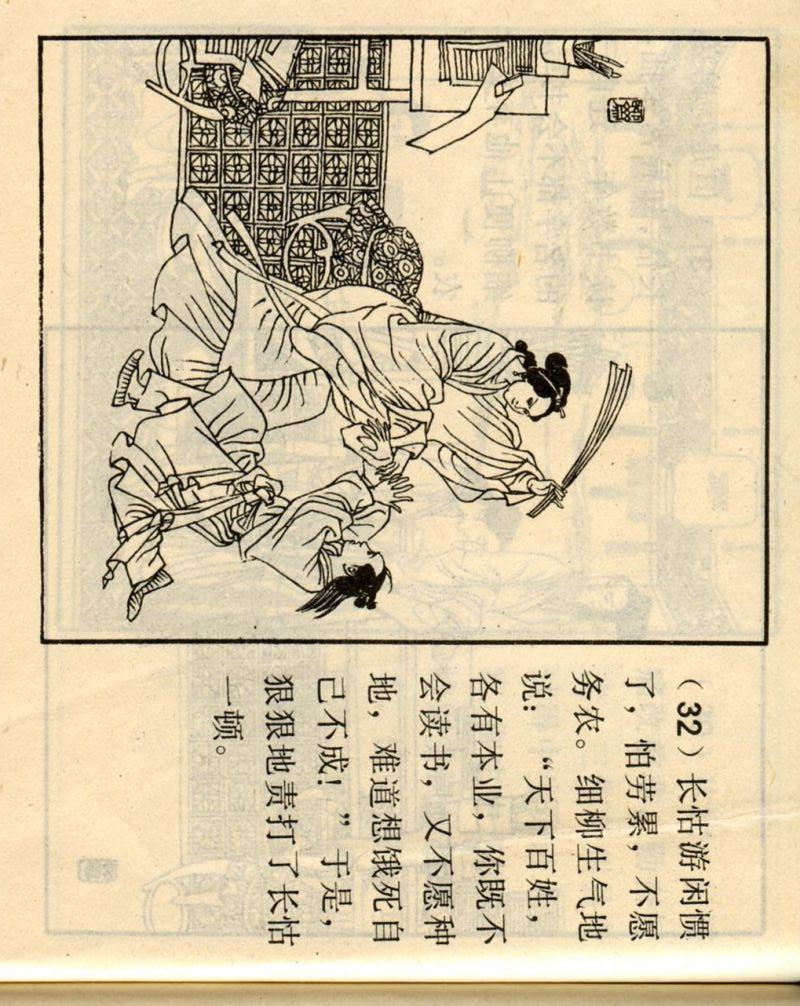 （32）长怙游闲惯
了，怕劳累，不愿
务农。细柳生气地
说：“天下百姓，
各有本业，你既不
会读书，又不愿种
地，难道想饿死自
己不成！”于是，
狠狠地责打了长怙
一顿。